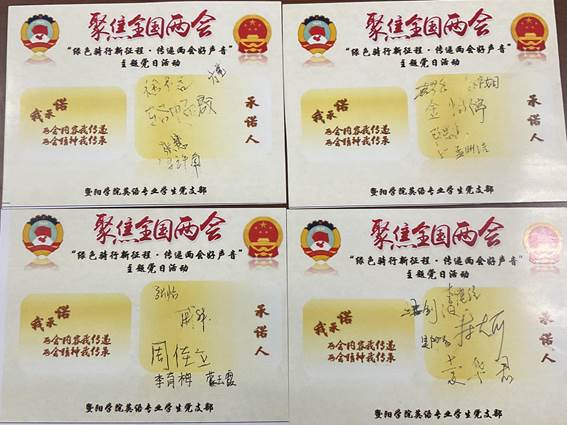 聚焦全国两会
“绿色骑行新征程·传递两会好声音”
主题党日活动
我承诺
两会内容我传递
两会精神我传承
承诺人
暨阳学院英语专业学生党支部
聚焦全国两会
“绿色骑行新征程·传递两会好声音”
主题党日活动
我承诺
两会内容我传递
两会精神我传承
承诺人
暨阳学院英语专业学生党支部
聚焦全国两会
“绿色骑行新征程·传递两会好声音”
主题党日活动
我承诺
两会内容我传递
两会精神我传承
张怡
周佳立
李育栂
承诺人
暨阳学院英语专业学生党支部
聚焦全国两会
“绿色骑行新征程·传递两会好声音”
主题党日活动
我承诺
两会内容我传递
两会精神我传承
承诺人
暨阳学院英语专业学生党支部